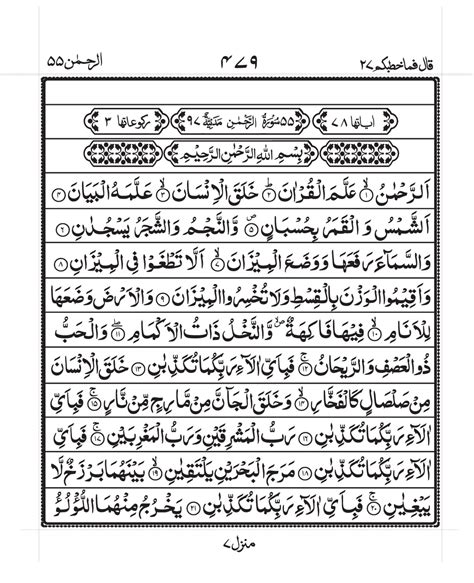 قال فماخطبکم ۲۷ ۴۷۹ الرحمٰن ۵۵
اٰیاتها ۷۸ ۵۵ سُوْرَةُ الرَّحْمٰنِ مَدَنِيَّةٌ ۹۷ رکوعاتها ۳
بِسْمِ اللهِ الرَّحْمٰنِ الرَّحِيْمِ
اَلرَّحْمٰنُ ۙ﴿۱﴾ عَلَّمَ الْقُرْاٰنَ ؕ﴿۲﴾ خَلَقَ الْاِنْسَانَ ۙ﴿۳﴾ عَلَّمَهُ الْبَيَانَ ﴿۴﴾
اَلشَّمْسُ وَ الْقَمَرُ بِحُسْبَانٍ ۪﴿۵﴾ وَّالنَّجْمُ وَالشَّجَرُ يَسْجُدٰنِ ﴿۶﴾
وَالسَّمَآءَ رَفَعَهَا وَوَضَعَ الْمِيْزَانَ ۙ﴿۷﴾ اَلَّا تَطْغَوْا فِي الْمِيْزَانِ ﴿۸﴾
وَاَقِيْمُوا الْوَزْنَ بِالْقِسْطِ وَلَا تُخْسِرُوا الْمِيْزَانَ ﴿۹﴾ وَالْاَرْضَ وَضَعَهَا
لِلْاَنَامِ ۙ﴿۱۰﴾ فِيْهَا فَاكِهَةٌ ۪ۙ وَّالنَّخْلُ ذَاتُ الْاَكْمَامِ ۖ﴿۱۱﴾ وَالْحَبُّ
ذُو الْعَصْفِ وَالرَّيْحَانُ ۚ﴿۱۲﴾ فَبِاَيِّ اٰلَآءِ رَبِّكُمَا تُكَذِّبٰنِ ﴿۱۳﴾ خَلَقَ الْاِنْسَانَ
مِنْ صَلْصَالٍ كَالْفَخَّارِ ۙ﴿۱۴﴾ وَخَلَقَ الْجَآنَّ مِنْ مَّارِجٍ مِّنْ نَّارٍ ۚ﴿۱۵﴾ فَبِاَيِّ
اٰلَآءِ رَبِّكُمَا تُكَذِّبٰنِ ﴿۱۶﴾ رَبُّ الْمَشْرِقَيْنِ وَرَبُّ الْمَغْرِبَيْنِ ۚ﴿۱۷﴾ فَبِاَيِّ
اٰلَآءِ رَبِّكُمَا تُكَذِّبٰنِ ﴿۱۸﴾ مَرَجَ الْبَحْرَيْنِ يَلْتَقِيٰنِ ۙ﴿۱۹﴾ بَيْنَهُمَا بَرْزَخٌ لَّا
يَبْغِيٰنِ ۚ﴿۲۰﴾ فَبِاَيِّ اٰلَآءِ رَبِّكُمَا تُكَذِّبٰنِ ﴿۲۱﴾ يَخْرُجُ مِنْهُمَا اللُّؤْلُؤُ
منزل ۷